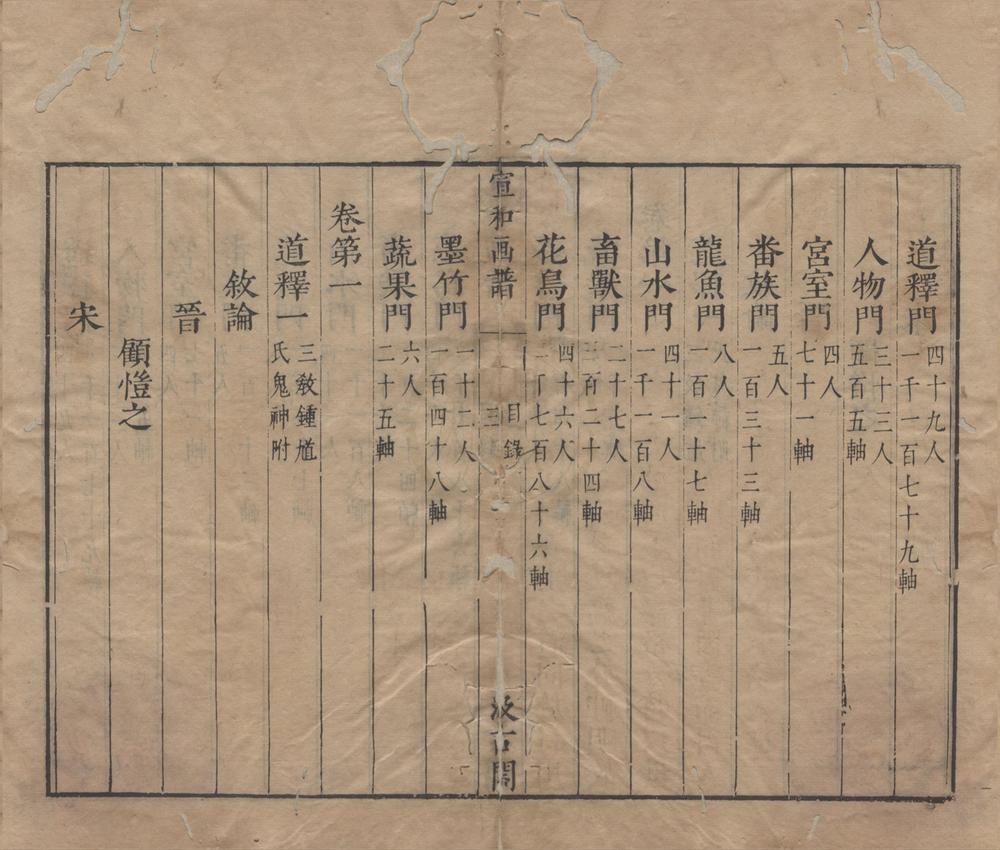 道釋門 四十九人
一千一百七十九軸
人物門 三十三人
五百五軸
宮室門 四人
七十一軸
畨族門 五人
一百三十三軸
龍魚門 八人
一百一十七軸
山水門 四十一人
一千一百八軸
畜獸門 二十七人
三百二十四軸
花鳥門 四十六人
二千七百八十六軸
宣和画譜 目錄 三 汲古閣
墨竹門 一十二人
一百四十八軸
蔬果門 六人
二十五軸
卷第一
道釋一 三敘鍾馗
氏鬼神附
敘論
晉
顧愷之
宋